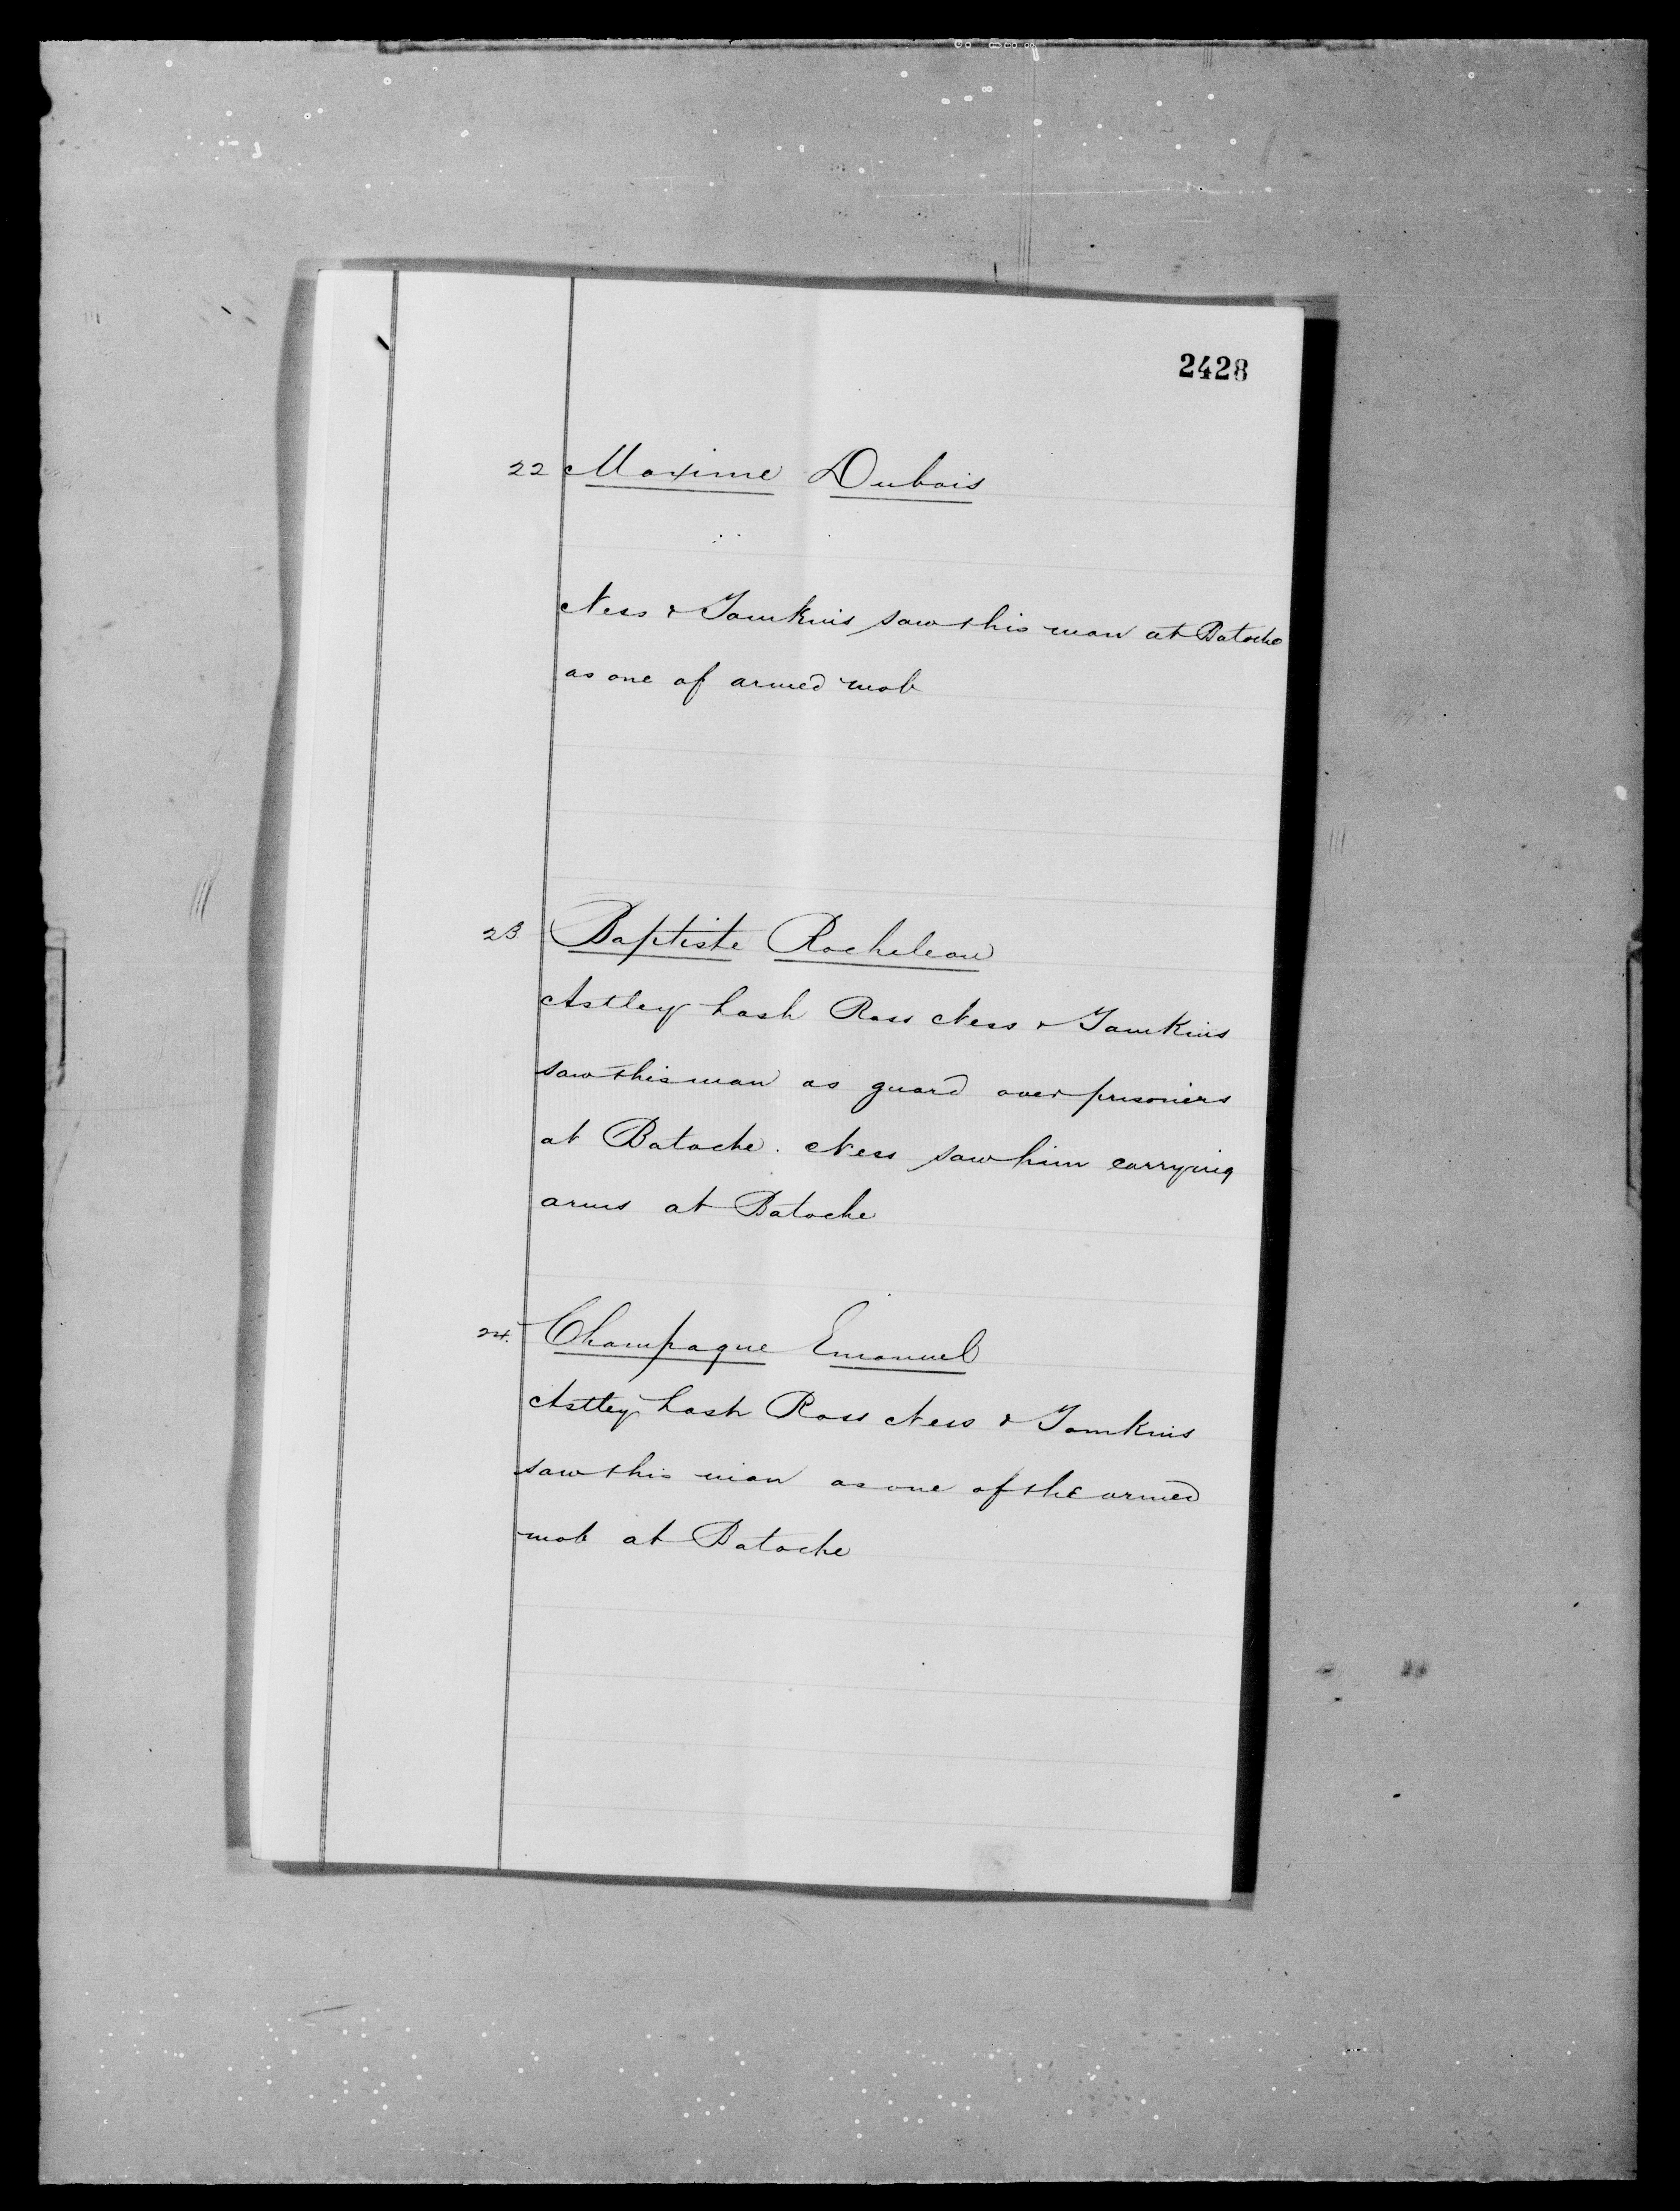 2428
22 Maxime Dubois
Ness & Tomkins saw this man at Batoche
as one of armed mob
23 Baptiste Rocheleau
Astley Lash Ross Ness & Tomkins
saw this man as guard over prisoners
at Batoche. Ness saw him carrying
arms at Batoche
24. Champagne Emanuel
Astley Lash Ross Ness & Tomkins
saw this man as one of the armed
mob at Batoche